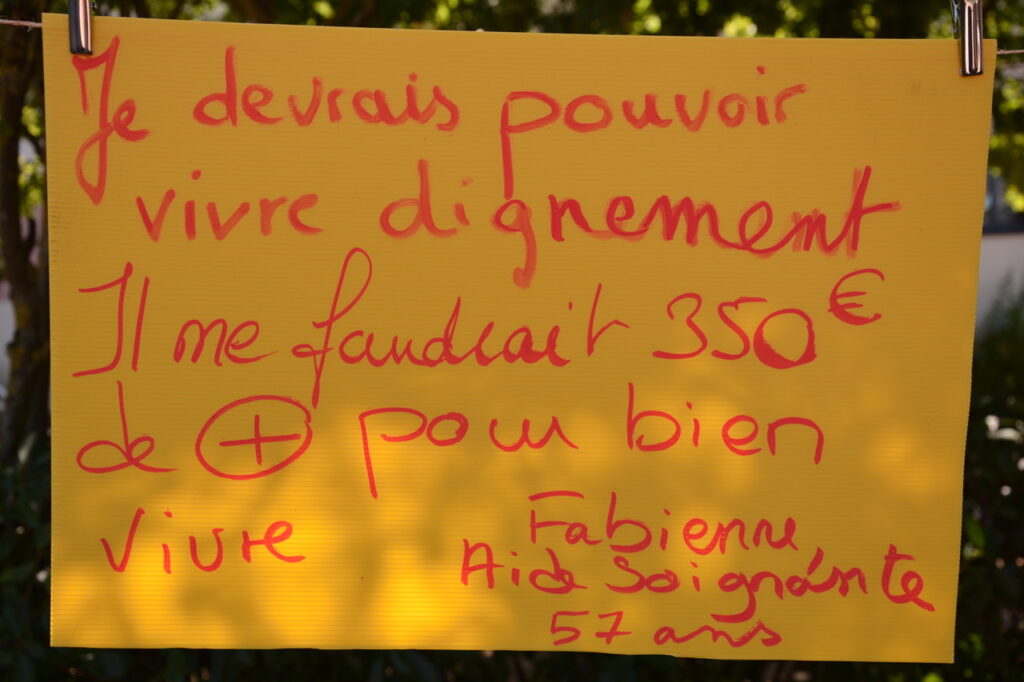 Je devrais pouvoir
vivre dignement
Il me faudrait 350€
de + pour bien
vivre
Fabienne,
Aide Soignante
57 ans